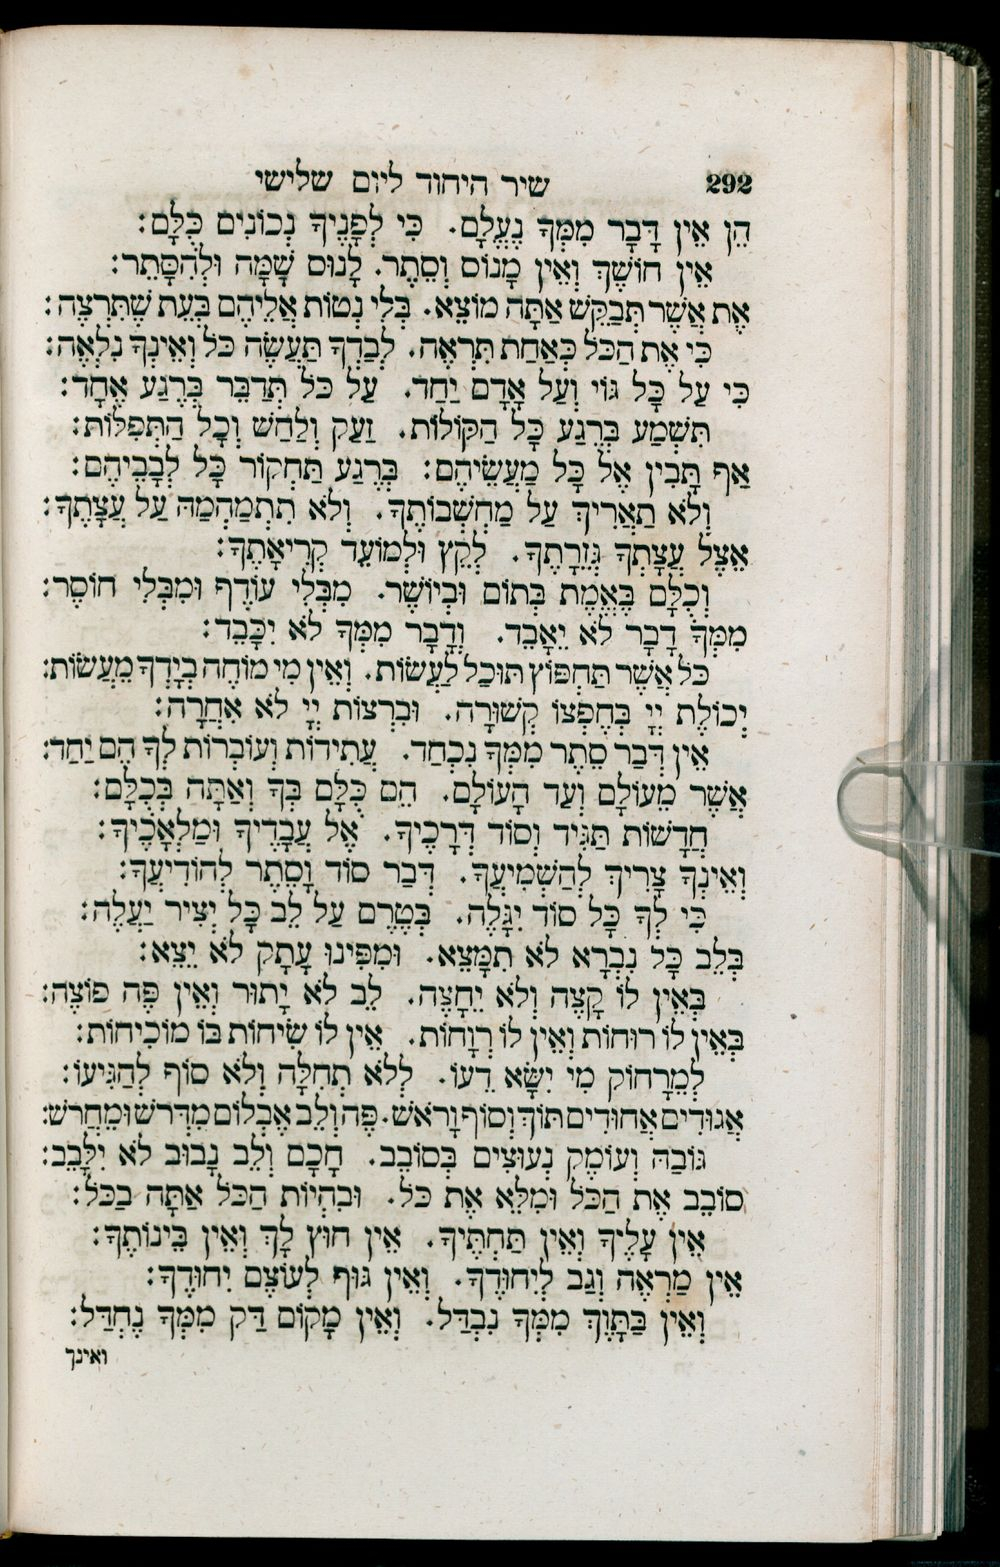 292 שיר היחוד ליום שלישי
הֵן אֵין דָּבָר מִמְּךָ נֶעֱלָם. כִּי לְפָנֶיךָ נְכוֹנִים כֻּלָּם:
אֵין חוֹשֶׁךְ וְאֵין מָנוֹס וְסֵתֶר. לָנוּס שָׁמָּה וּלְהִסָּתֵר:
אֶת אֲשֶׁר תְּבַקֵּשׁ אַתָּה מוֹצֵא. בְּלִי נְטוֹת אֲלֵיהֶם בְּעֵת שֶׁתִּרְצֶה:
כִּי אֶת הַכֹּל כְּאַחַת תִּרְאֶה. לְבַדְּךָ תַּעֲשֶׂה כֹּל וְאֵינְךָ נִלְאֶה:
כִּי עַל כָּל גּוֹי וְעַל אָדָם יַחַד. עַל כֹּל תְּדַבֵּר בְּרֶגַע אֶחָד:
תִּשְׁמַע בְּרֶגַע כָּל הַקּוֹלוֹת. זַעַק וְלַחַשׁ וְכָל הַתְּפִלּוֹת:
אַף תָּבִין אֶל כָּל מַעֲשֵׂיהֶם: בְּרֶגַע תַּחְקוֹר כָּל לְבָבֵיהֶם:
וְלֹא תַאֲרִיךְ עַל מַחְשְׁבוֹתֶיךָ. וְלֹא תִתְמַהְמַהּ עַל עֲצָתֶךָ:
אֵצֶל עֲצָתְךָ גְּזֵרָתֶךָ. לְקֵץ וּלְמוֹעֵד קְרִיאָתֶךָ:
וְכֻלָּם בֶּאֱמֶת בְּתוֹם וּבְיוֹשֶׁר. מִבְּלִי עוֹדֶף וּמִבְּלִי חוֹסֶר:
מִמְּךָ דָבָר לֹא יֵאָבֵד. וְדָבָר מִמְּךָ לֹא יִכָּבֵד:
כֹּל אֲשֶׁר תַּחְפּוֹץ תּוּכַל לַעֲשׂוֹת. וְאֵין מִי מוֹחֶה בְיָדְךָ מֵעֲשׂוֹת:
יְכוֹלֶת יְיָ בְּחֶפְצוֹ קְשׁוּרָה. וּבִרְצוֹת יְיָ לֹא אֵחֲרָה:
אֵין דְּבַר סֵתֶר מִמְּךָ נִכְחַד. עֲתִידוֹת וְעוֹבְרוֹת לְךָ הֵם יַחַד:
אֲשֶׁר מֵעוֹלָם וְעַד הָעוֹלָם. הֵם כֻּלָּם בְּךָ וְאַתָּה בְּכֻלָּם:
חֲדָשׁוֹת תַּגִּיד וְסוֹד דְּרָכֶיךָ. אֶל עֲבָדֶיךָ וּמַלְאָכֶיךָ:
וְאֵינְךָ צָרִיךְ לְהַשְׁמִיעֲךָ. דְּבַר סוֹד וָסֵתֶר לְהוֹדִיעֲךָ:
כִּי לְךָ כָּל סוֹד יִגָּלֶה. בְּטֶרֶם עַל לֵב כָּל יְצִיר יַעֲלֶה:
בְּלֵב כָּל נִבְרָא לֹא תִמָּצֵא. וּמִפִּינוּ עָתָק לֹא יֵצֵא:
בְּאֵין לוֹ קָצֶה וְלֹא יֵחָצֶה. לֵב לֹא יָתוּר וְאֵין פֶּה פּוֹצֶה:
בְּאֵין לוֹ רוּחוֹת וְאֵין לוֹ רְוָחוֹת. אֵין לוֹ שִׂיחוֹת בּוֹ מוֹכִיחוֹת:
לְמֵרָחוֹק מִי יִשָּׂא דֵעוֹ. לְלֹא תְחִלָּה וְלֹא סוֹף לְהַגִּיעוֹ:
אֲגוּדִים אֲחוּדִים תּוֹךְ וְסוֹף וָרֹאשׁ. פֶּה וְלֵב אֶבְלוֹם מִדְּרֹשׁ וּמֵחֲרֹשׁ:
גּוֹבַהּ וְעוֹמֶק נְעוּצִים כְּסוֹבֵב. חָכָם וְלֵב נָבוּב לֹא יִלָּבֵב:
סוֹבֵב אֶת הַכֹּל וּמְלֵא אֶת כֹּל. וּבִהְיוֹת הַכֹּל אַתָּה בַכֹּל:
אֵין עָלֶיךָ וְאֵין תַּחְתֶּיךָ. אֵין חוּץ לְךָ וְאֵין בֵּינוֹתֶךָ:
אֵין מַרְאֶה וְגַב לְיִחוּדֶךָ. וְאֵין גּוּף לְעוֹצֶם יִחוּדֶךָ:
וְאֵין בַּתָּוֶךְ מִמְּךָ נִבְדָּל. וְאֵין מָקוֹם דַּק מִמְּךָ נֶחְדָּל:
ואינך